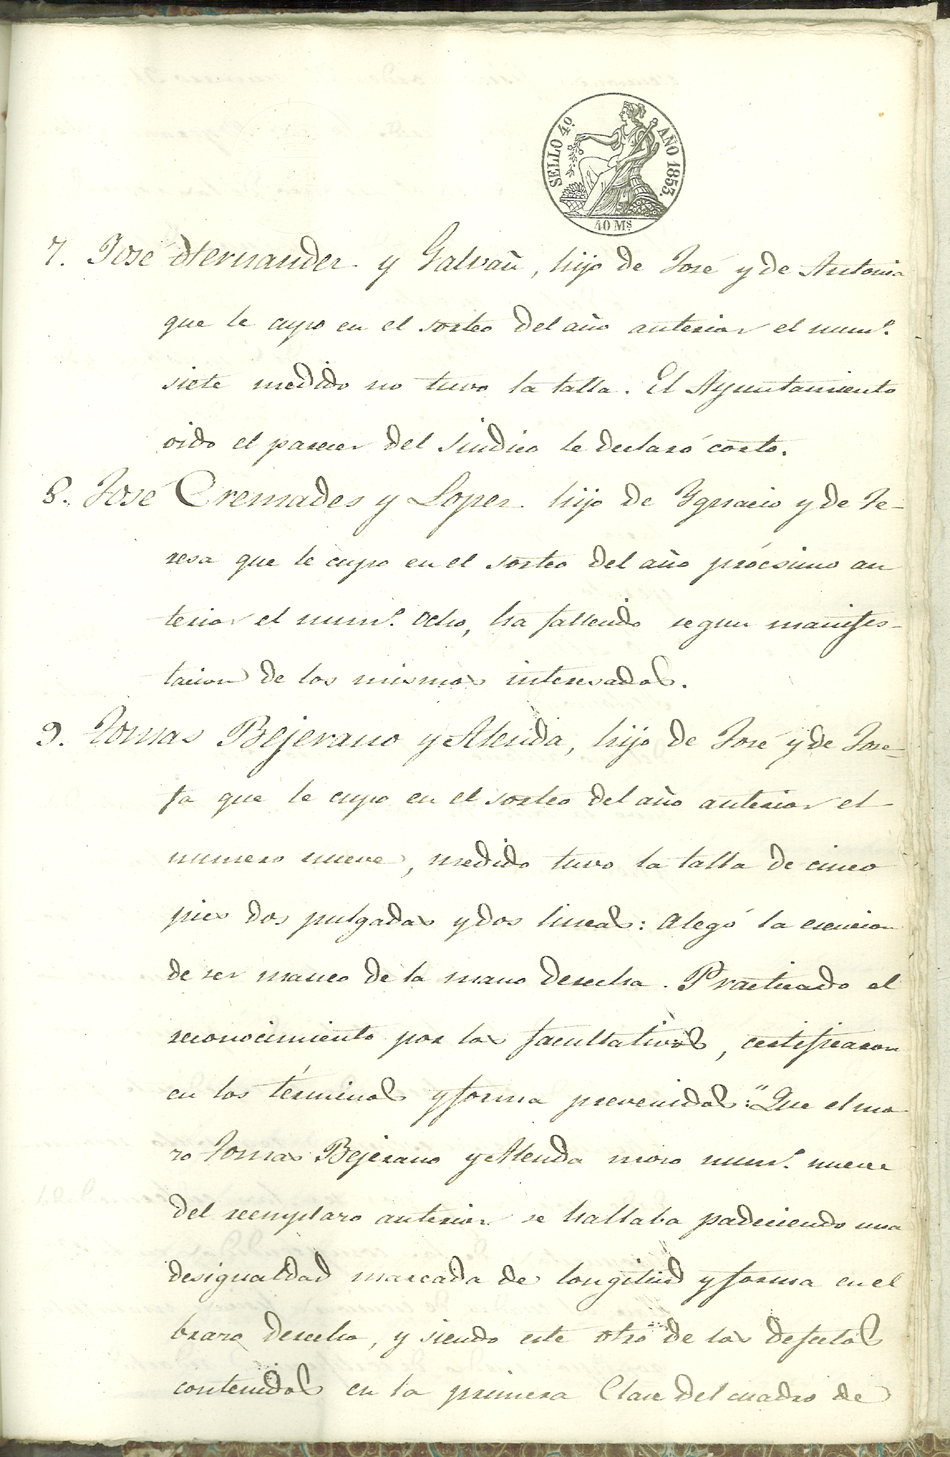 SELLO 4º AÑO 1853.
40 Ms
7. José Hernandez y Galvañ, hijo de José y de Antonia
que le cupo en el sorteo del año anterior el numº.
siete medido no tuvo la talla. El Ayuntamiento
oido el parecer del Sindico le declaró corto.
8. José Cremades y Lopez hijo de Ygnacio y de Te-
resa que le cupo en el sorteo del año prócsimo an
terior el numº. ocho, ha fallecido segun manifes-
tacion de los mismos interesados.
9. Tomas Bejerano y Alenda, hijo de José y de Jose-
fa que le cupo en el sorteo del año anterior el
numero nueve, medido tuvo la talla de cinco
pies dos pulgadas y dos lineas: alegó la esencion
de ser manco de la mano derecha. Practicado el
reconocimiento por los facultativos, certificaron
en los términos y forma prevenidos: "Que el mo
zo Tomas Bejerano y Alenda mozo numº. nueve
del reemplazo anterior se hallaba padeciendo una
desigualdad marcada de longitud y forma en el
brazo derecho, y siendo este otro de los defectos
contenidos en la primera Clase del cuadro de